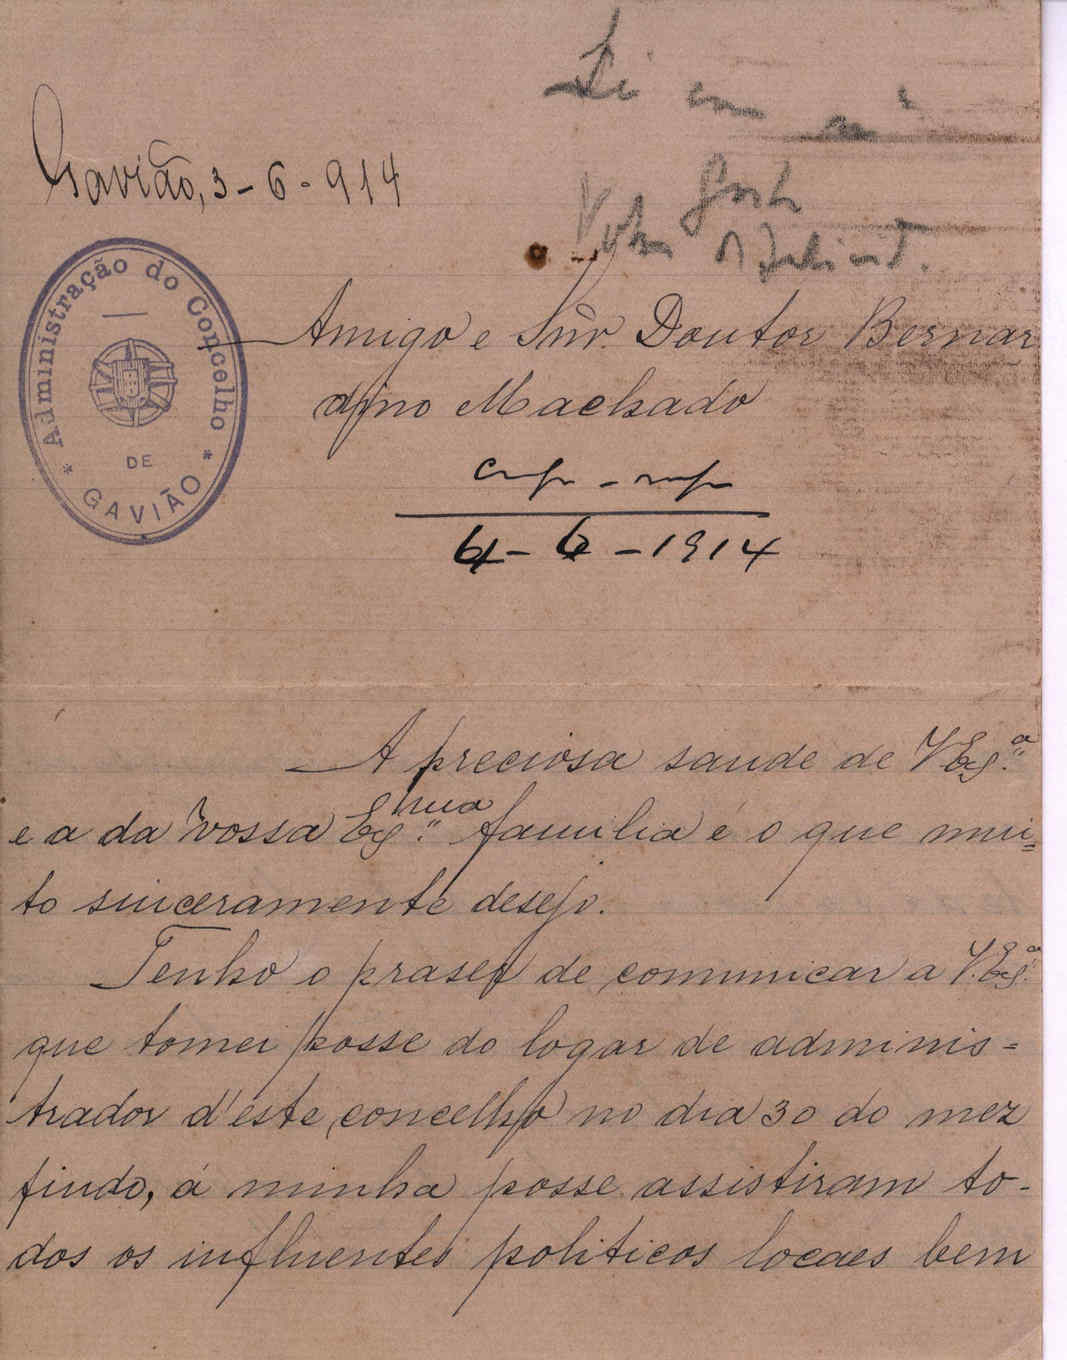 Gavião, 3-6-914
Administração do Concelho
DE
GAVIÃO
Amigo e Snr. Doutor Bernar
dino Machado
6-1914
A preciosa saude de V Exª
e a da vossa Exma familia é o que mui=
to sinceramente desejo.
Tenho o praser de comunicar a V. Exª
que tomei posse do logar de adminis=
trador d'este concelho no dia 30 do mez
findo, á minha posse assistiram to-
dos os influentes politicos locaes bem